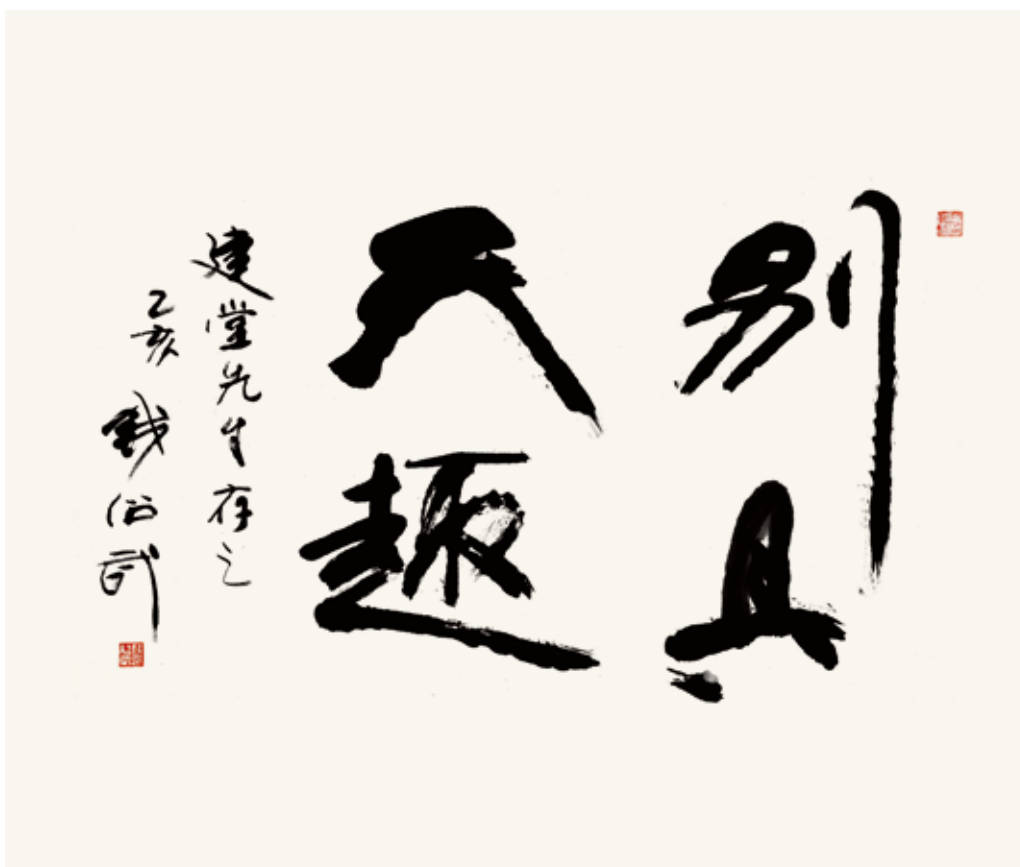 别具
天趣
建堂先生存之
乙亥 钱绍武